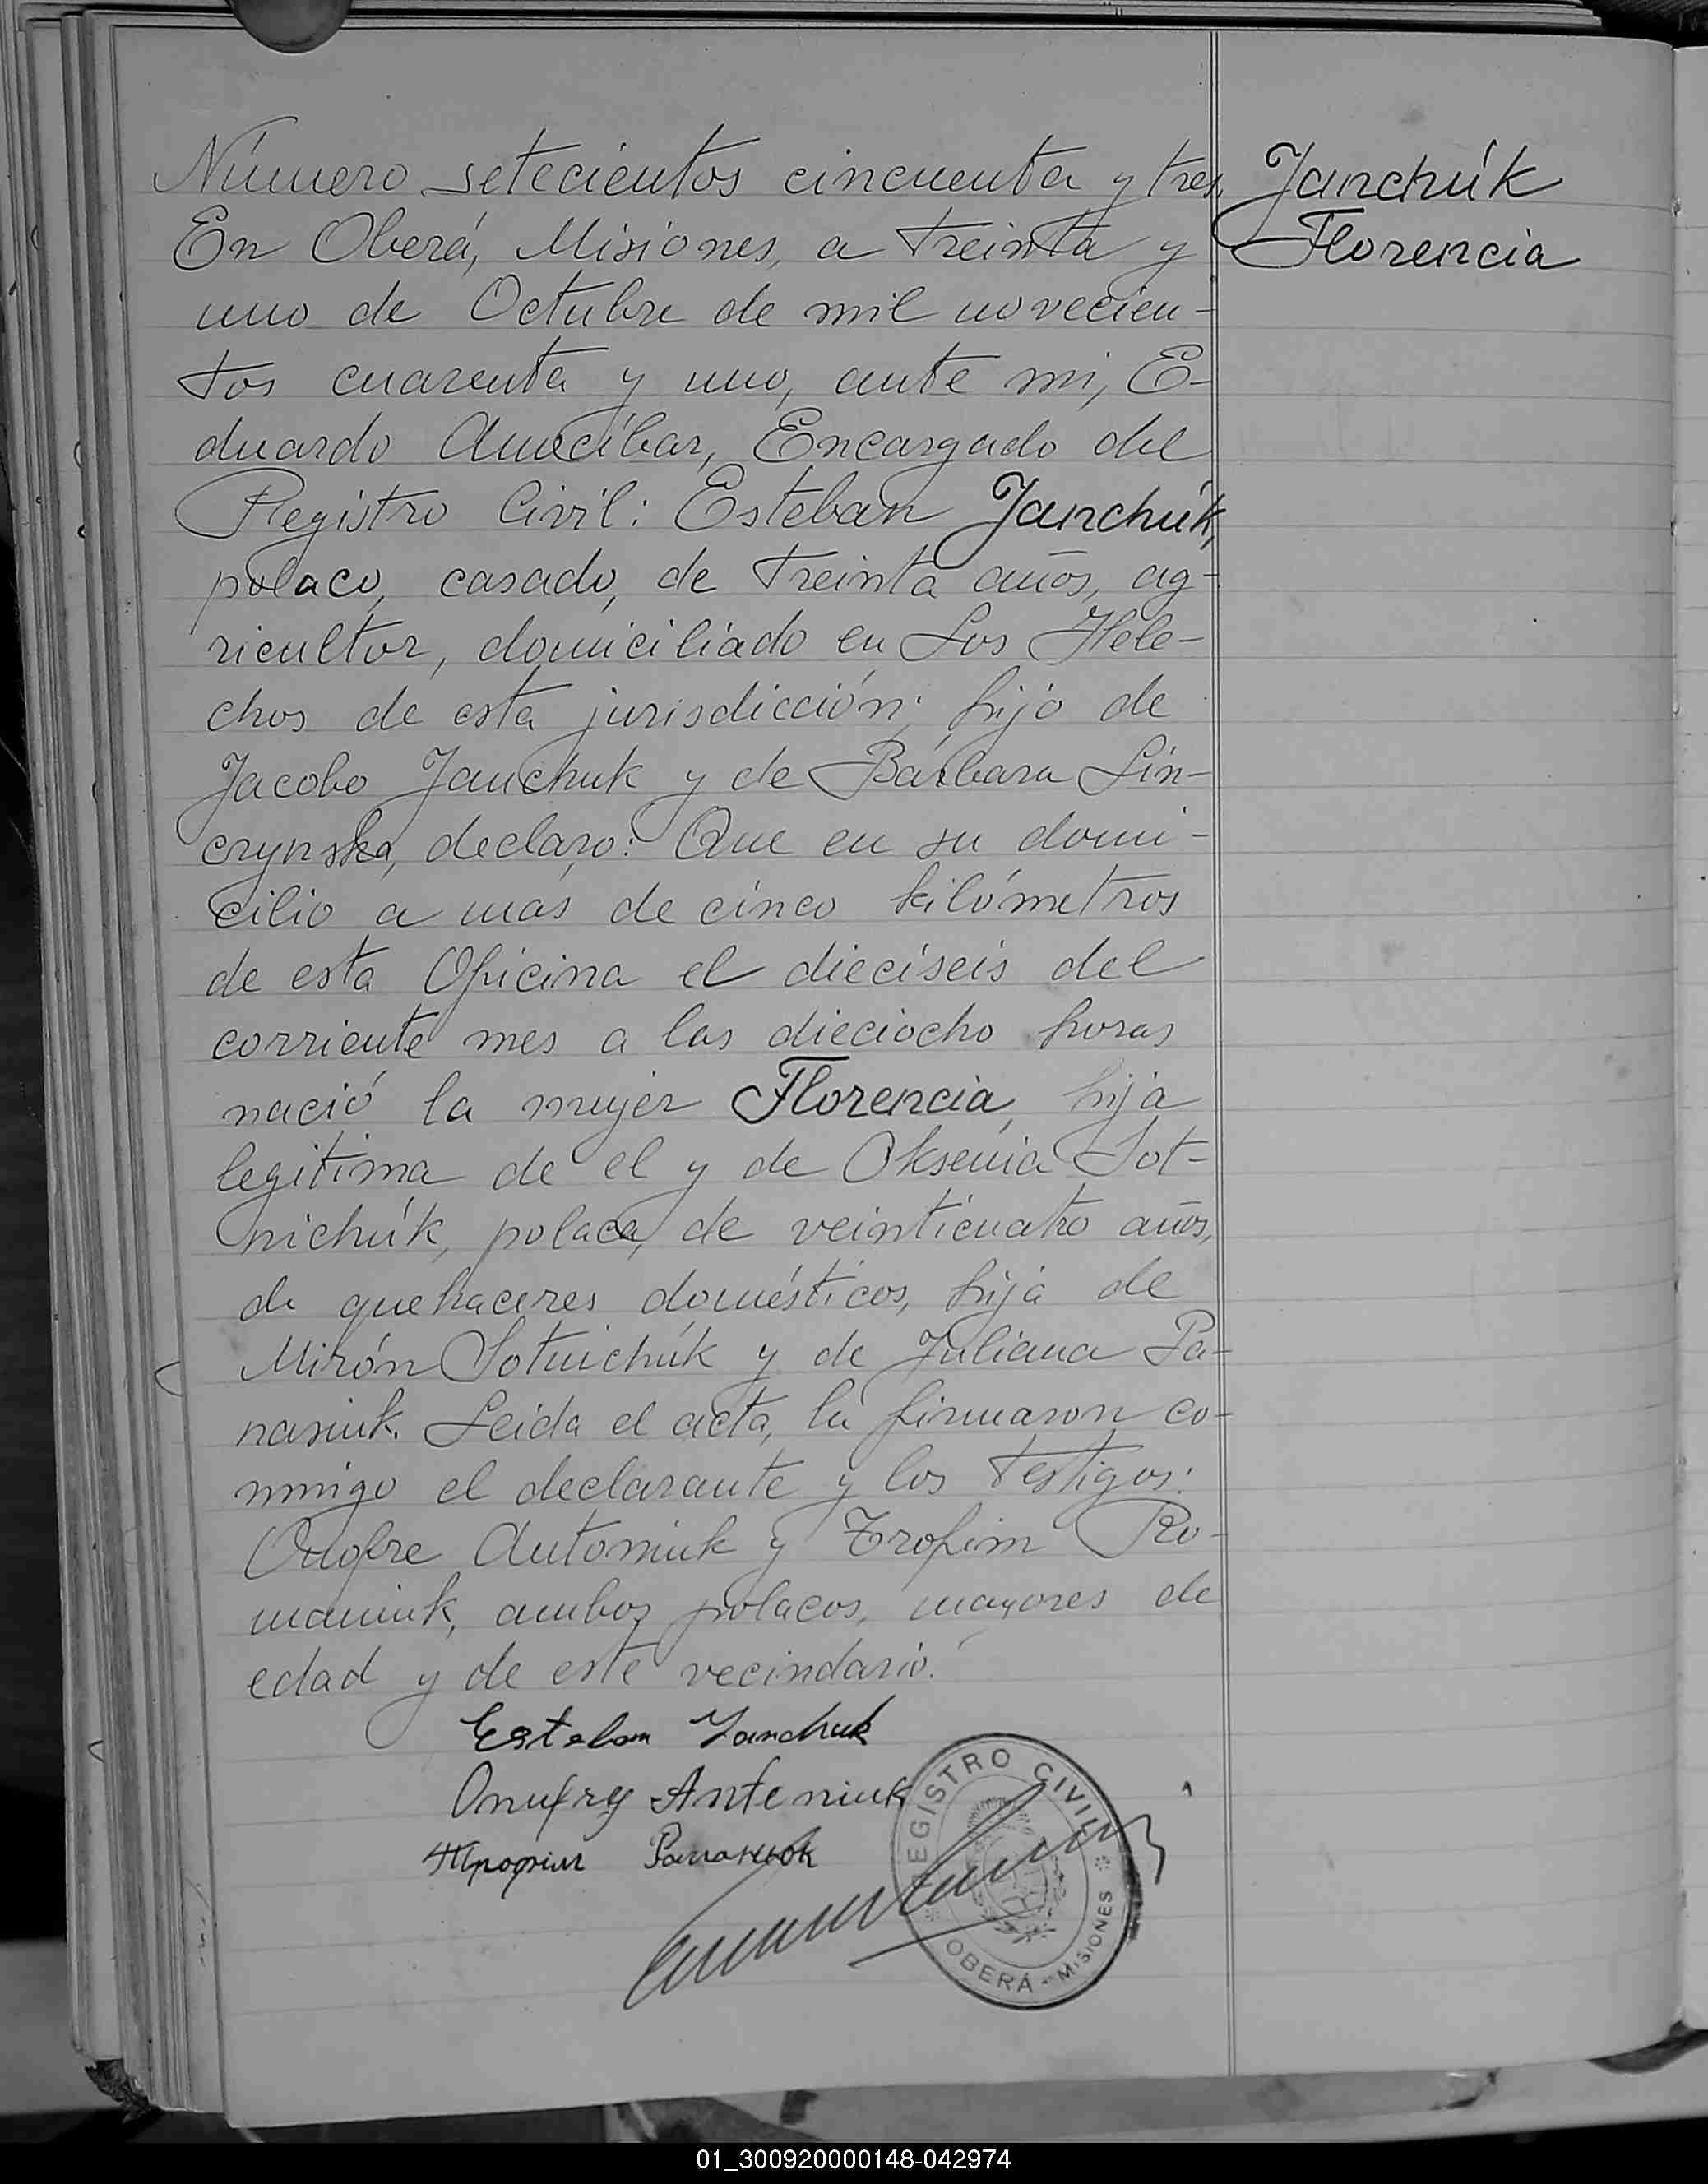 Número setecientos cincuenta y tres.
En Oberá, Misiones, a treinta y
uno de Octubre de mil novecien-
tos cuarenta y uno, ante mi, E-
duardo Amocibar, Encargado del
Registro Civil: Esteban Janchúk,
polaco, casado, de treinta años, ag-
ricultor, domiciliado en Los Hele-
chos de esta jurisdicción; hijo de
Jacobo Janchuk y de Bárbara Lin-
czynska, declaro: Que en su domi-
cilio a mas de cinco kilómetros
de esta Oficina el dieciseis del
corriente mes a las dieciocho horas
nació la mujer Florencia, hija
legitima de el y de Oksenia Sot-
nichúk, polaca, de veinticuatro años,
de quehaceres domésticos, hija de
Mirón Sotnichúk y de Juliana Pa-
nasiuk. Leida el acta, la firmaron co-
nmigo el declarante y los testigos:
Onofre Antoniuk y Trofim Ro-
maniuk, ambos polacos, mayores de
edad y de este vecindario.
Janchúk
Florencia
Esteban Janchuk
Onufry Anteniuk
Трофім Романюк
REGISTRO CIVIL
OBERÁ - MISIONES
01_300920000148-042974